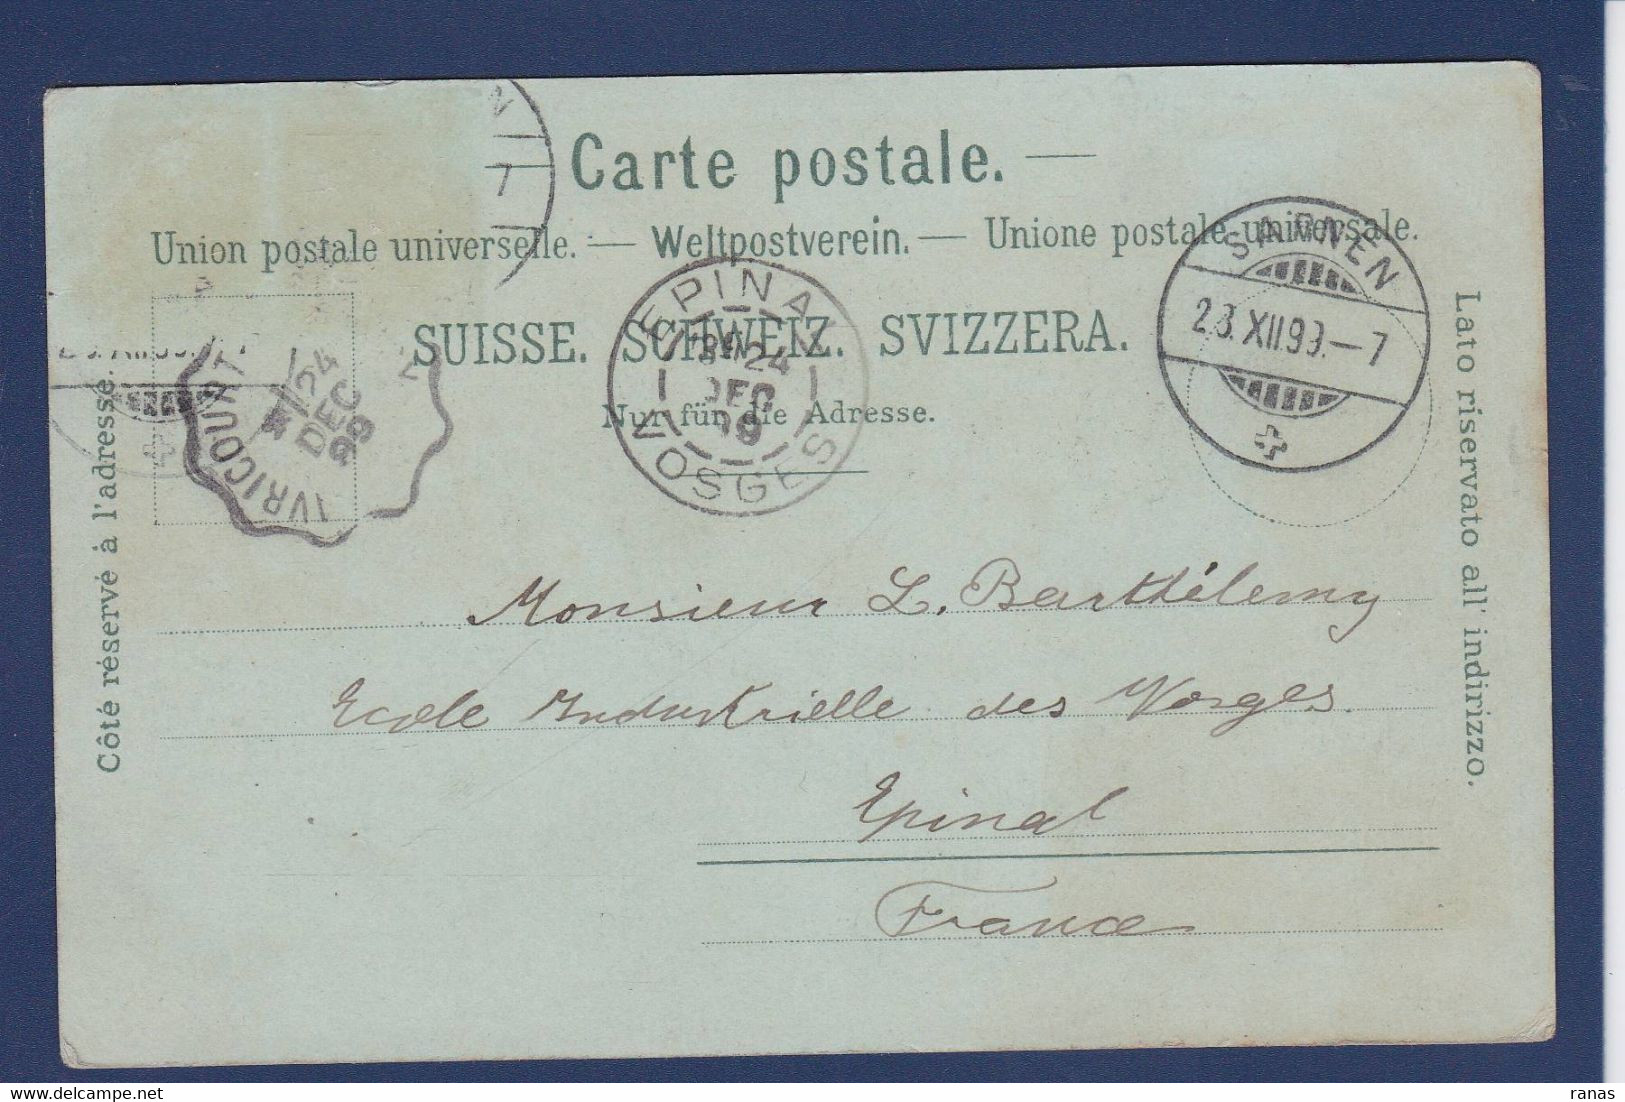 Carte postale.
Union postale universelle. — Weltpostverein. — Unione postale universale.
SUISSE. SCHWEIZ. SVIZZERA.
Nur für die Adresse.
Côté réservé à l'adresse.
Lato riservato all' indirizzo.
SARNEN
23.XII.99.—7
EPINAL
24
DEC
99
VOSGES
AVRICOURT
24
DEC
99
Monsieur L. Barthélemy
Ecole Industrielle des Vosges.
Epinal
France
Delcampe.net
ranas